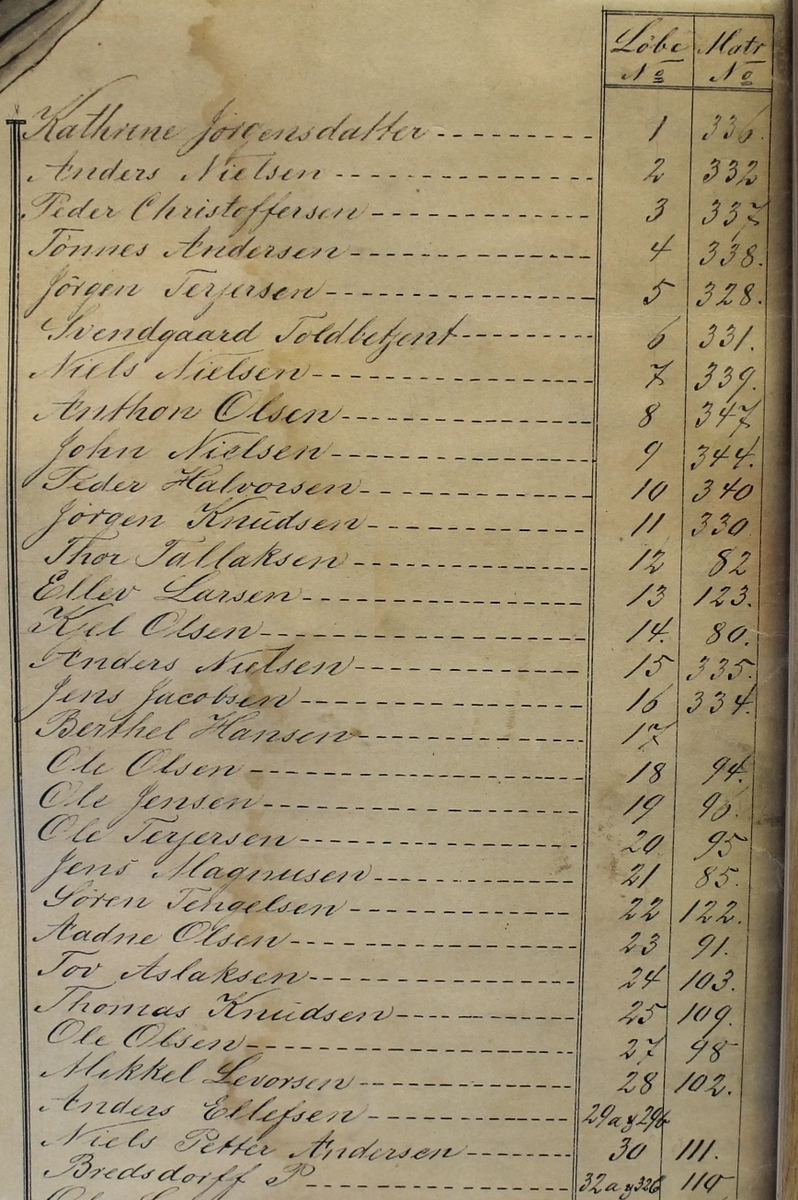 Löbe Matr
No No
Kathrine Jörgensdatter 1 336.
Anders Nielsen 2 332
Peder Christoffersen 3 337
Tönnes Andersen 4 338.
Jörgen Terjersen 5 328.
Svendgaard Toldbetjent 6 331.
Niels Nielsen 7 339.
Anthon Olsen 8 347
John Nielsen 9 344.
Peder Halvorsen 10 340
Jörgen Knudsen 11 330
Thor Tallaksen 12 82
Ellev Larsen 13 123.
Kjel Olsen 14. 80.
Anders Nielsen 15 335.
Jens Jacobsen 16 334.
Berthel Hansen 17
Ole Olsen 18 94.
Ole Jensen 19 96.
Ole Terjersen 20 95
Jens Magnusen 21 85.
Sören Tengelsen 22 122.
Aadne Olsen 23 91.
Tov Aslaksen 24 103.
Thomas Knudsen 25 109.
Ole Olsen 27 98
Mikkel Levorsen 28 102.
Anders Ellefsen 29a y 29b
Niels Petter Andersen 30 111.
Bredsdorff P 32a y 32b 110